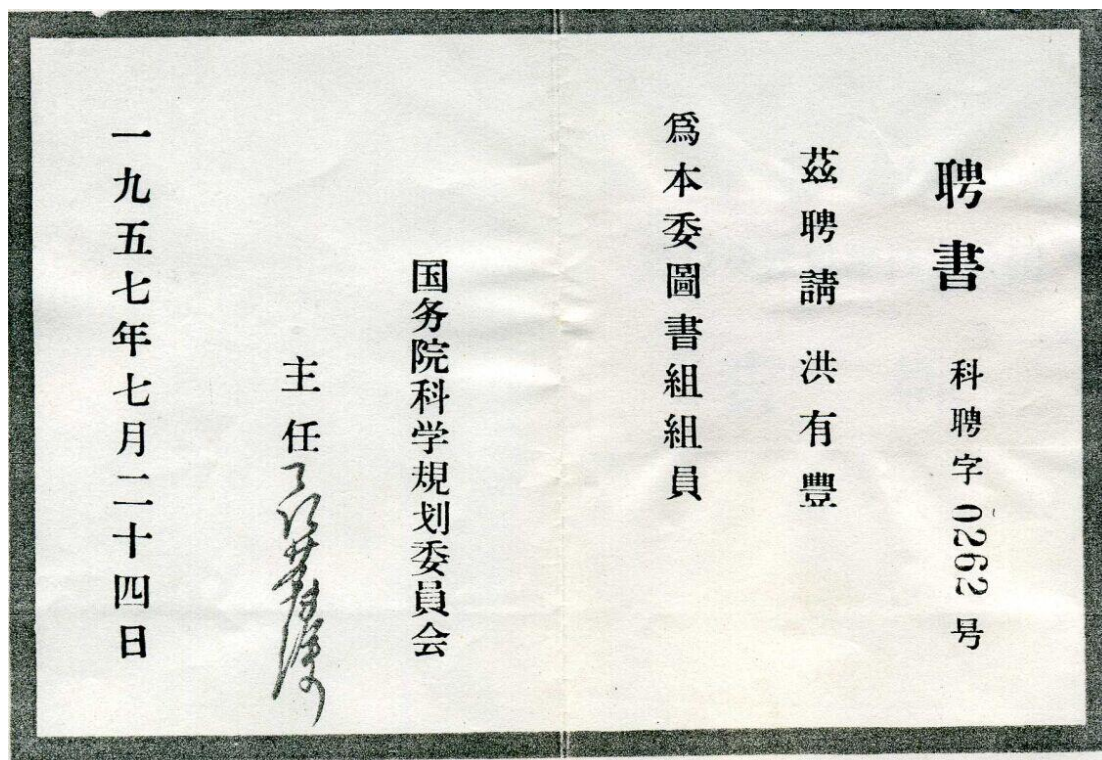 聘書 科聘字0262号
茲聘請 洪有豐
爲本委圖書組組員
国务院科学規划委員会
主任
一九五七年七月二十四日